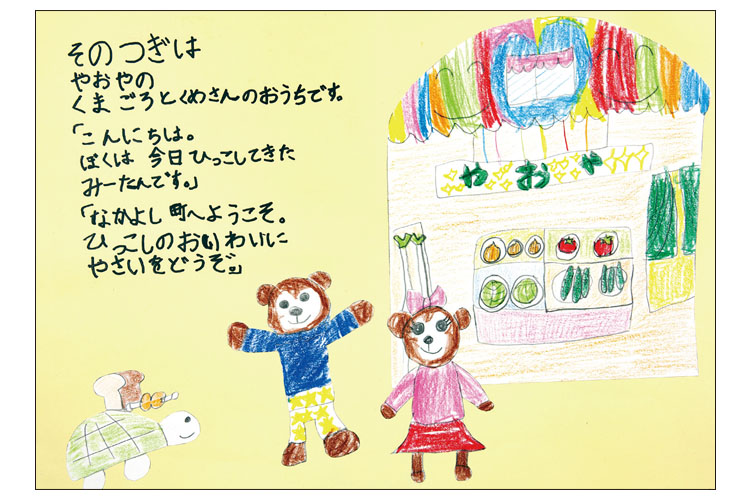 そのつぎは
やおやの
くまごろとくめさんのおうちです。
「こんにちは。
ぼくは 今日ひっこしてきた
みーたんです。」
「なかよし町へようこそ。
ひっこしのおいわいに
やさいをどうぞ。」
やおや